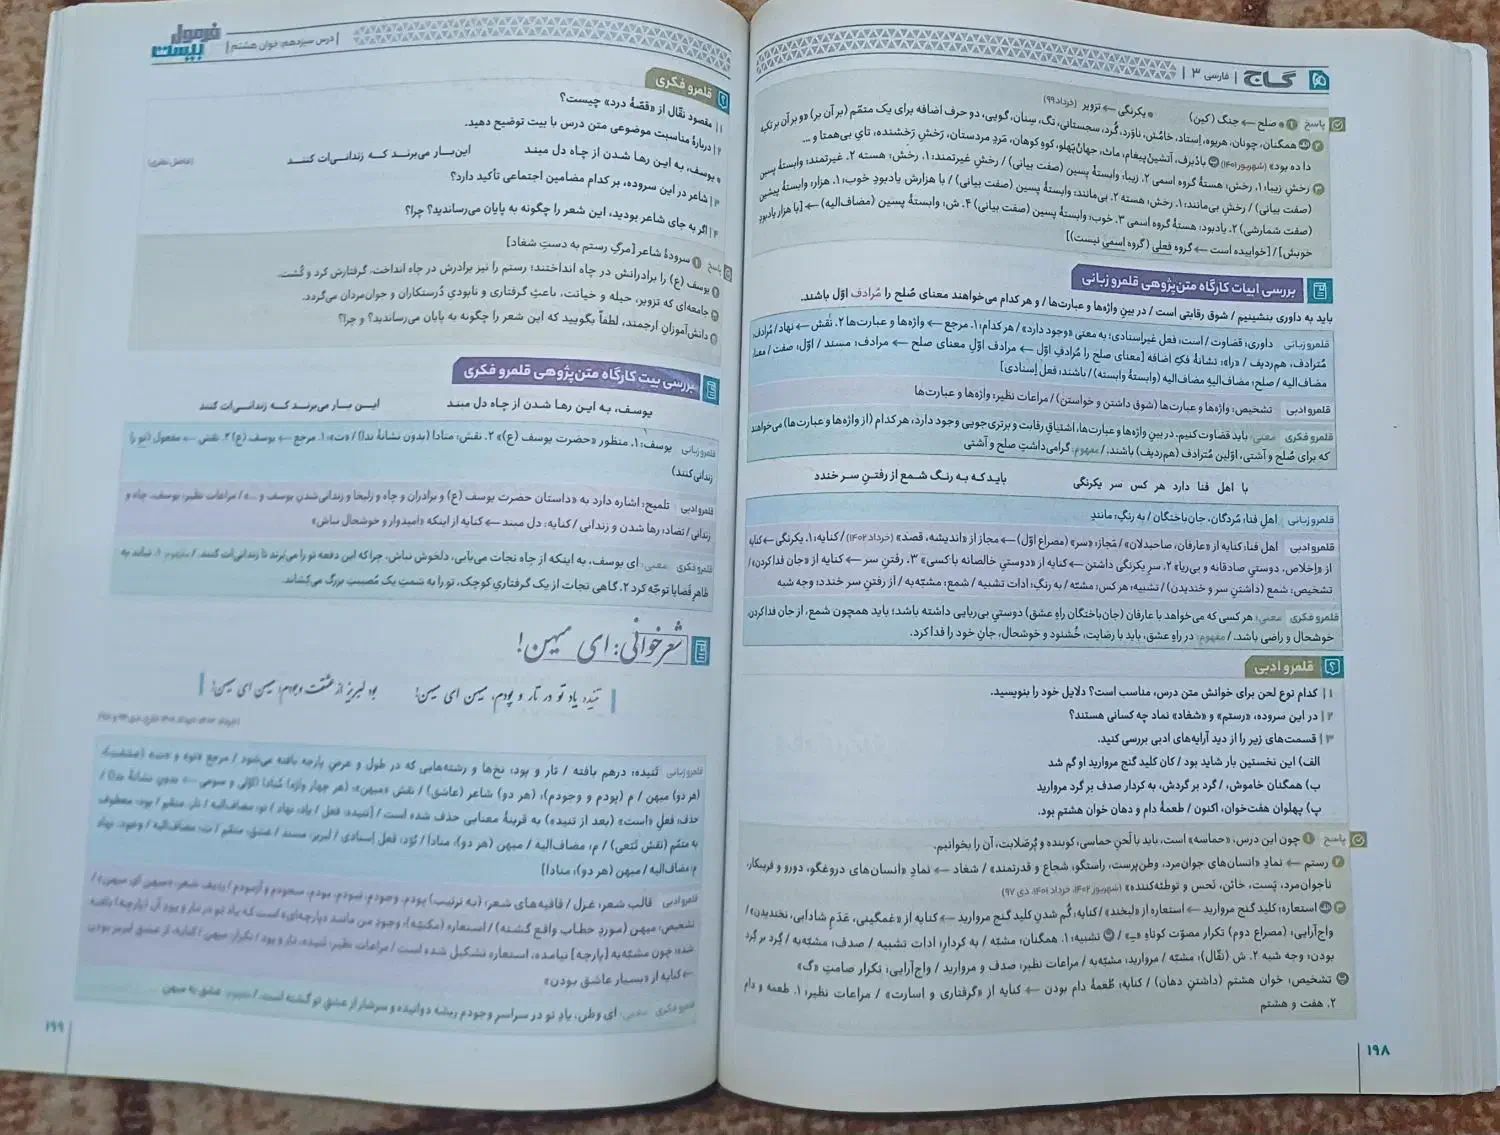 گاج | فارسی ۳ |
پاسخ ۱ • صلح ← جنگ (کین) • یکرنگی ← تزویر (خرداد ۹۹)
۲ الف همگنان، چونان، هریوه، اِستاد، خامُش، ناوَرد، گُرد، سجستانی، تگ، سِنان، گویی، دو حرف اضافه برای یک متمّم (بر آن بر) «و بر آن بر تکیه
دا ده بود» (شهریور ۱۴۰۱) ب بادبَرَف، آتشین‌پیغام، ماث، جهان‌پهلو، کوهِ کوهان، مَردِ مردستان، رَخشِ رَخشنده، تایِ بی‌همتا و ...
۳ رخشِ زیبا: ۱. رخش: هستهٔ گروه اسمی ۲. زیبا: وابستهٔ پسین (صفت بیانی) / رخشِ غیرتمند: ۱. رخش: هسته ۲. غیرتمند: وابستهٔ پسین
(صفت بیانی) / رخشِ بی‌مانند: ۱. رخش: هسته ۲. بی‌مانند: وابستهٔ پسین (صفت بیانی) / با هزارش یادبودِ خوب: ۱. هزار: وابستهٔ پیشین
(صفت شمارشی) ۲. یادبود: هستهٔ گروه اسمی ۳. خوب: وابستهٔ پسین (صفت بیانی) ۴. ش: وابستهٔ پسین (مضاف‌الیه) ← [با هزار یادبودِ
خوبش] / [خوابیده است ← گروه فعلی (گروه اسمی نیست)]
بررسی ابیات کارگاه متن‌پژوهی قلمرو زبانی
باید به داوری بنشینیم / شوق رقابتی است / در بینِ واژه‌ها و عبارت‌ها / و هر کدام می‌خواهند معنای صُلح را مُرادف اوّل باشند.
قلمرو زبانی داوری: قضاوت / است: فعل غیراسنادی؛ به معنی «وجود دارد» / هر کدام: ۱. مرجع ← واژه‌ها و عبارت‌ها ۲. نقش ← نهاد / مُرادف:
مُترادف، هم‌ردیف / «را»: نشانهٔ فکِ اضافه [معنای صلح را مُرادفِ اوّل ← مرادف اوّلِ معنای صلح ← مرادف: مسند / اوّل: صفت / معنا:
مضاف‌الیه / صلح: مضاف‌الیهِ مضاف‌الیه (وابستهٔ وابسته) / باشند: فعل اِسنادی]
قلمرو ادبی تشخیص: واژه‌ها و عبارت‌ها (شوق داشتن و خواستن) / مراعات نظیر: واژه‌ها و عبارت‌ها
قلمرو فکری معنی: باید قضاوت کنیم. در بین واژه‌ها و عبارت‌ها، اشتیاقِ رقابت و برتری‌جویی وجود دارد، هر کدام (از واژه‌ها و عبارت‌ها) می‌خواهند
که برای صُلح و آشتی، اوّلین مُترادف (هم‌ردیف) باشند. / مفهوم: گرامی‌داشتِ صلح و آشتی
با اهل فنا دارد هر کس سر یکرنگی باید که به رنگ شمع از رفتنِ سر خندد
قلمرو زبانی اهلِ فنا: مُردگان، جان‌باختگان / به رنگِ: مانندِ
قلمرو ادبی اهل فنا: کنایه از «عارفان، صاحبدلان» / مَجاز: «سر» (مصراع اوّل) ← مجاز از «اندیشه، قصد» (خرداد ۱۴۰۲) / کنایه: ۱. یکرنگی ← کنایه
از «اِخلاص، دوستیِ صادقانه و بی‌ریا» ۲. سرِ یکرنگی داشتن ← کنایه از «دوستیِ خالصانه با کسی» ۳. رفتنِ سر ← کنایه از «جان فدا کردن» /
تشخیص: شمع (داشتنِ سر و خندیدن) / تشبیه: هر کس: مشبّه / به رنگِ: ادات تشبیه / شمع: مشبّه‌به / از رفتنِ سر خندد: وجه شبه
قلمرو فکری معنی: هر کسی که می‌خواهد با عارفان (جان‌باختگانِ راهِ عشق) دوستیِ بی‌ریایی داشته باشد؛ باید همچون شمع، از جان فدا کردن،
خوشحال و راضی باشد. / مفهوم: در راهِ عشق، باید با رضایت، خُشنود و خوشحال، جانِ خود را فدا کرد.
قلمرو ادبی
۱ | کدام نوع لحن برای خوانش متن درس، مناسب است؟ دلایل خود را بنویسید.
۲ | در این سروده، «رستم» و «شغاد» نماد چه کسانی هستند؟
۳ | قسمت‌های زیر را از دید آرایه‌های ادبی بررسی کنید.
الف) این نخستین بار شاید بود / کان کلید گنج مروارید او گم شد
ب) همگنان خاموش، / گرد بر گردش، به کردار صدف بر گرد مروارید
پ) پهلوان هفت‌خوان، اکنون / طعمهٔ دام و دهان خوان هشتم بود.
پاسخ ۱ چون این درس، «حماسه» است، باید با لَحنِ حماسی، کوبنده و پُرصَلابت، آن را بخوانیم.
۲ رستم ← نمادِ «انسان‌های جوان‌مرد، وطن‌پرست، راستگو، شجاع و قدرتمند» / شغاد ← نمادِ «انسان‌های دروغگو، دورو و فریبکار،
ناجوان‌مرد، پَست، خائن، نَحس و توطئه‌کننده» (شهریور ۱۴۰۲، خرداد ۱۴۰۱، دی ۹۷)
۳ الف استعاره: کلید گنج مروارید ← استعاره از «لبخند» / کنایه: گُم شدنِ کلید گنج مروارید ← کنایه از «غمگینی، عَدَمِ شادابی، نخندیدن» /
واج‌آرایی: (مصراع دوم) تکرار مصوّت کوتاهِ «ـِ» / ب تشبیه: ۱. همگنان: مشبّه / به کردارِ: ادات تشبیه / صدف: مشبّه‌به / گِرد بر گِرد
بودن: وجه شبه ۲. ش (نقّال): مشبّه / مروارید: مشبّه‌به / مراعات نظیر: صدف و مروارید / واج‌آرایی: تکرار صامتِ «گ»
پ تشخیص: خوان هشتم (داشتنِ دهان) / کنایه: طُعمهٔ دام بودن ← کنایه از «گرفتاری و اسارت» / مراعات نظیر: ۱. طعمه و دام
۲. هفت و هشتم
۱۹۸
فرمول بیست | درس سیزدهم: خوان هشتم |
قلمرو فکری
۱ | مقصود نقّال از «قصّهٔ درد» چیست؟
۲ | دربارهٔ مناسبت موضوعی متن درس با بیت توضیح دهید.
• یوسف، به این رها شدن از چاه دل مبند این‌بار می‌برند که زندانی‌ات کنند (فاضل نظری)
۳ | شاعر در این سروده، بر کدام مضامین اجتماعی تأکید دارد؟
۴ | اگر به جای شاعر بودید، این شعر را چگونه به پایان می‌رساندید؟ چرا؟
پاسخ ۱ سرودهٔ شاعر [مرگِ رستم به دستِ شغاد]
۲ یوسف (ع) را برادرانش در چاه انداختند؛ رستم را نیز برادرش در چاه انداخت، گرفتارش کرد و کُشت.
۳ جامعه‌ای که تزویر، حیله و خیانت، باعثِ گرفتاری و نابودیِ دُرستکاران و جوان‌مردان می‌گردد.
۴ دانش‌آموزانِ ارجمند، لطفاً بگویید که این شعر را چگونه به پایان می‌رساندید؟ و چرا؟
بررسی بیت کارگاه متن‌پژوهی قلمرو فکری
یوسف، به این رها شدن از چاه دل مبند این بار می‌برند که زندانی‌ات کنند
قلمرو زبانی یوسف: ۱. منظور «حضرت یوسف (ع)» ۲. نقش: منادا (بدون نشانهٔ ندا) / «ت»: ۱. مرجع ← یوسف (ع) ۲. نقش ← مفعول (تو را
زندانی کنند)
قلمرو ادبی تلمیح: اشاره دارد به «داستان حضرت یوسف (ع) و برادران و چاه و زلیخا و زندانی شدن یوسف و ...» / مراعات نظیر: یوسف، چاه و
زندانی / تضاد: رها شدن و زندانی / کنایه: دل مبند ← کنایه از اینکه «امیدوار و خوشحال نباش»
قلمرو فکری معنی: ای یوسف، به اینکه از چاه نجات می‌یابی، دلخوش نباش، چرا که این دفعه تو را می‌برند تا زندانی‌ات کنند. / مفهوم: ۱. نباید به
ظاهرِ قضایا توجّه کرد ۲. گاهی نجات از یک گرفتاریِ کوچک، تو را به سَمتِ یک مُصیبت بزرگ می‌کِشاند.
شعرخوانی: ای میهن!
تنیده یاد تو در تار و پودم، میهن ای میهن! بود لبریز از عشقت وجودم، میهن ای میهن!
قلمرو زبانی تَنیده: درهم بافته / تار و پود: نخ‌ها و رشته‌هایی که در طول و عرضِ پارچه بافته می‌شود / مرجع «تو» و
(هر دو) میهن / م (پودم و وجودم)، (هر دو) شاعر (عاشق) / نقش «میهن»: (هر چهار واژه) مُنادا (اوّلی و سومی ← بدون نشانهٔ ندا) /
حذف: فعلِ «است» (بعد از تنیده) به قرینهٔ معنایی حذف شده است / [تنیده: فعل / یاد: نهاد / تو: مضاف‌الیه / تار: متمّم / پود: معطوف
به متمّم (نقش تَبَعی) / م: مضاف‌الیه / میهن (هر دو): منادا / بُوَد: فعل اِسنادی / لبریز: مسند / عشق: متمّم / ت: مضاف‌الیه / وجود: نهاد
م: مضاف‌الیه / میهن (هر دو): منادا]
قلمرو ادبی قالب شعر: غزل / قافیه‌های شعر: (به ترتیب) پودم، وجودم، نبودم، بودم، سجودم و آزمودم / ردیف شعر: «میهن ای میهن» /
تشخیص: میهن (موردِ خطاب واقع گشته) / استعاره (مکنیّه): وجودِ من مانند «پارچه‌ای» است که یادِ تو در تار و پود آن (پارچه) بافته
شده؛ چون مشبّه‌به [پارچه] نیامده، استعاره تشکیل شده است / مراعات نظیر: تنیده، تار و پود / تکرار: میهن / کنایه: از عشق لبریز بودن
← کنایه از «بسیار عاشق بودن»
قلمرو فکری معنی: ای وطن، یادِ تو در سراسرِ وجودم ریشه دوانیده و سرشار از عشق تو گشته است. / مفهوم: عشق به میهن
۱۹۹